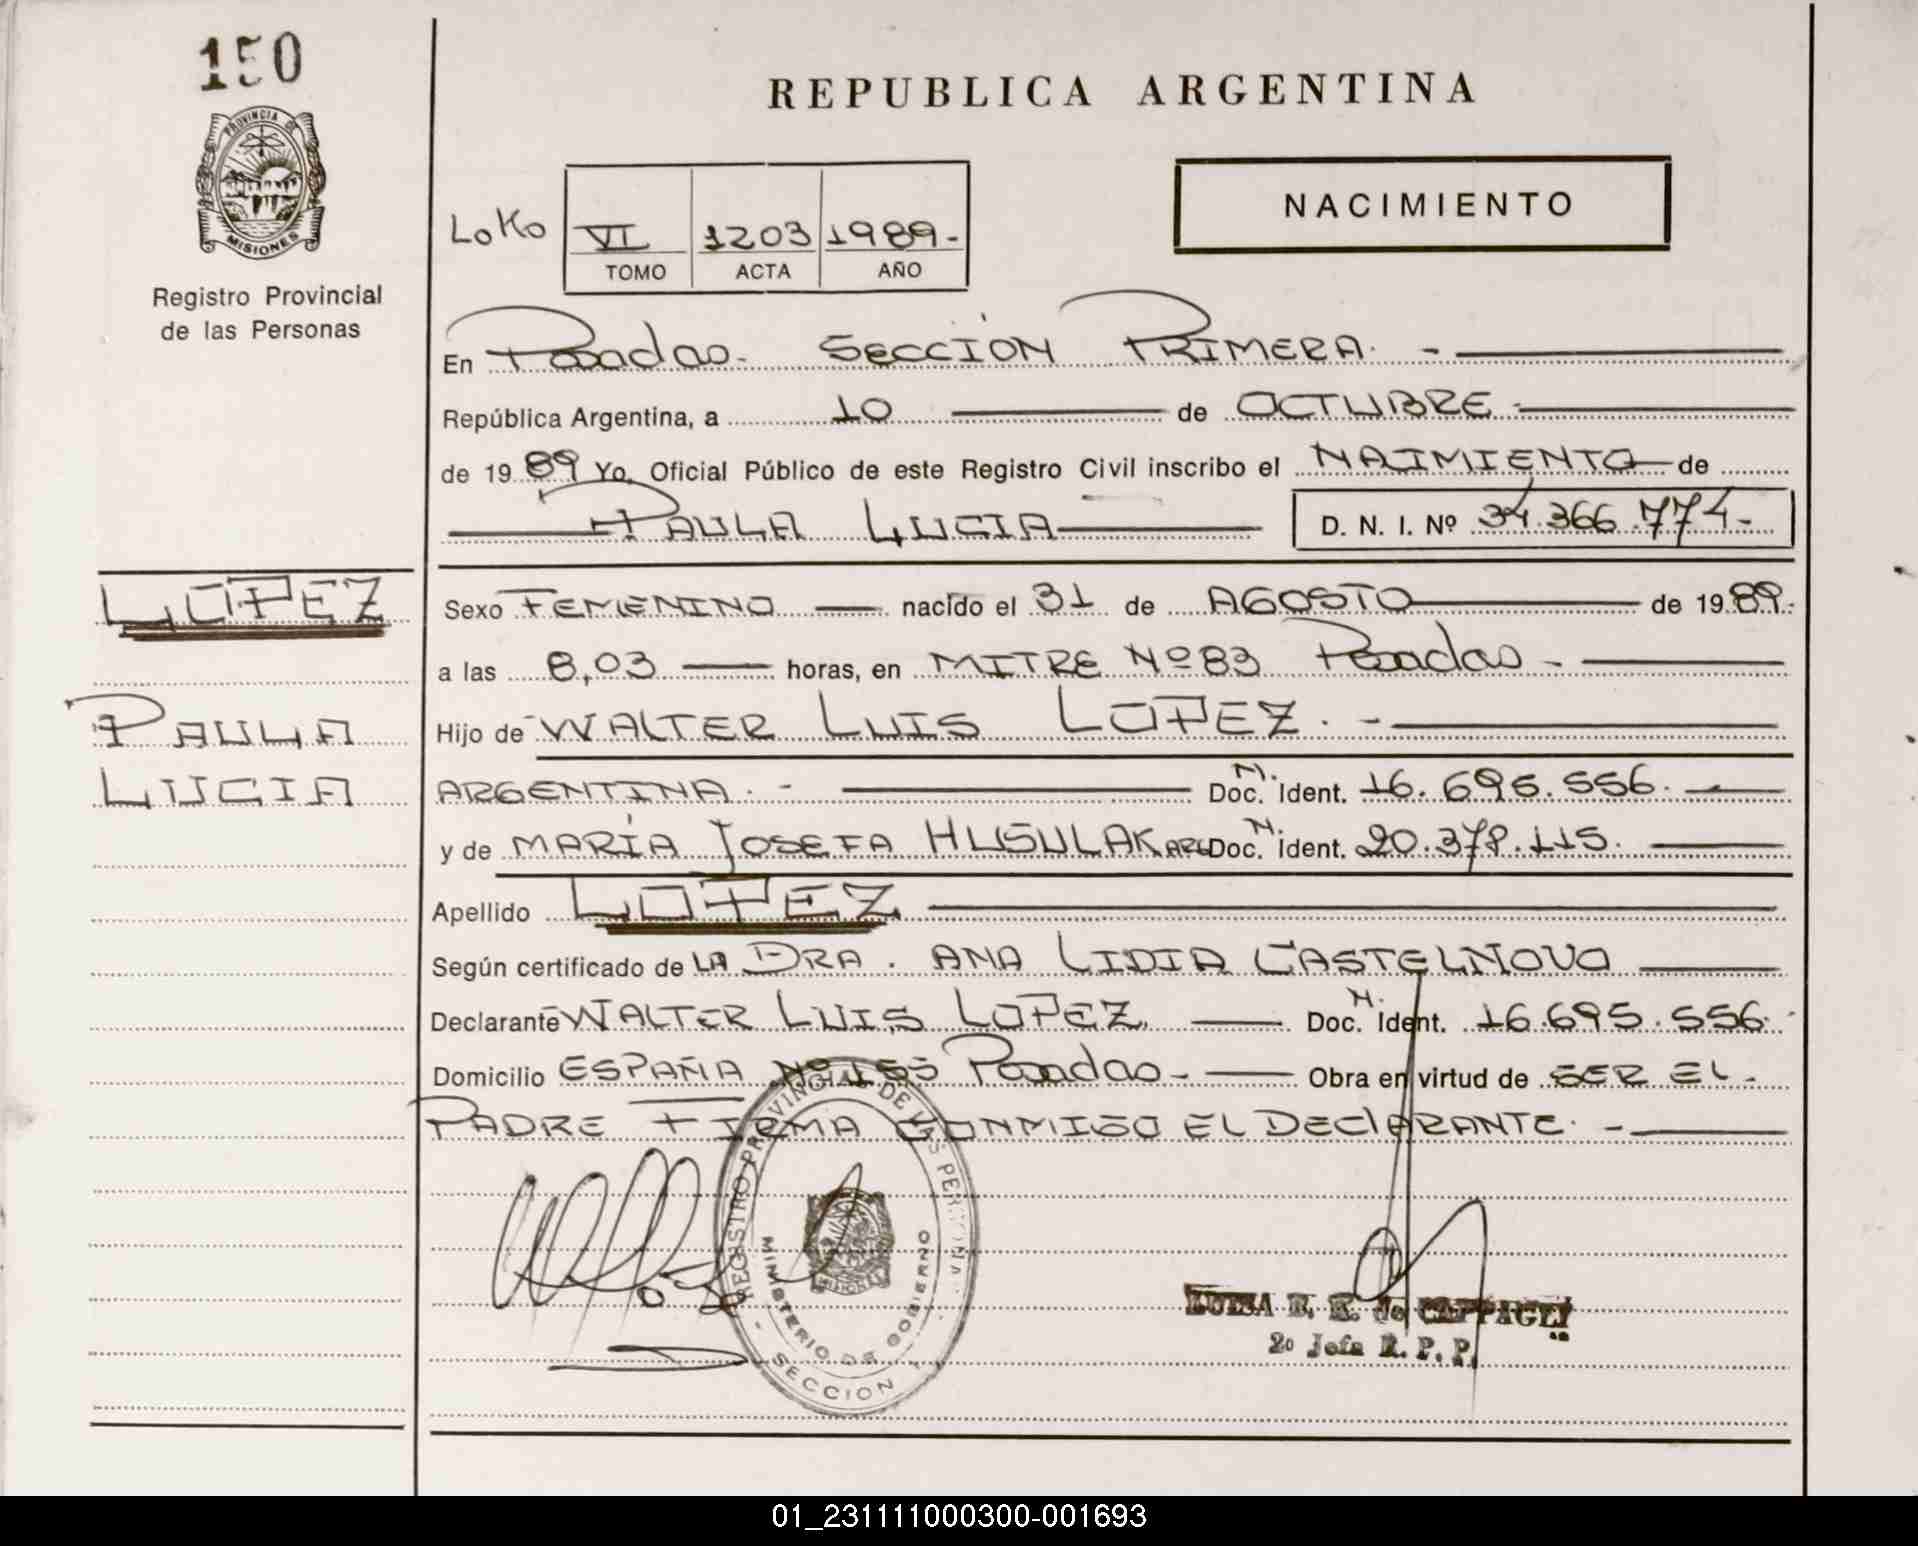 150
PROVINCIA DE
MISIONES
Registro Provincial
de las Personas
REPUBLICA ARGENTINA
NACIMIENTO
LoKo
VI 1203 1989-
TOMO ACTA AÑO
En Posadas- SECCIÓN PRIMERA. -
República Argentina, a 10 de OCTUBRE -
de 1989 Yo, Oficial Público de este Registro Civil inscribo el NACIMIENTO de
PAULA LUCIA
D. N. I. Nº 34.366.774-
LOPEZ
PAULA
LUCIA
Sexo FEMENINO nacido el 31 de AGOSTO de 1989-
a las 8,03 horas, en MITRE Nº83 Posadas -
Hijo de WALTER LUIS LOPEZ. -
ARGENTINA. - Doc. N. Ident. 16.695.556.
y de MARÍA JOSEFA HUSULAK ARG Doc. N. Ident. 20.378.115.
Apellido LOPEZ
Según certificado de LA DRA. ANA LIDIA CASTELNOVO
Declarante WALTER LUIS LOPEZ Doc. N. Ident. 16.695.556.
Domicilio ESPAÑA Nº 155 Posadas - Obra en virtud de SER EL -
PADRE FIRMA CONMIGO EL DECLARANTE. -
REGISTRO PROVINCIAL DE LAS PERSONAS
MINISTERIO DE GOBIERNO
MISIONES
- SECCION 1 -
LUISA E. K. de CAPPAGLI
2º Jefa R. P. P.
01_231111000300-001693